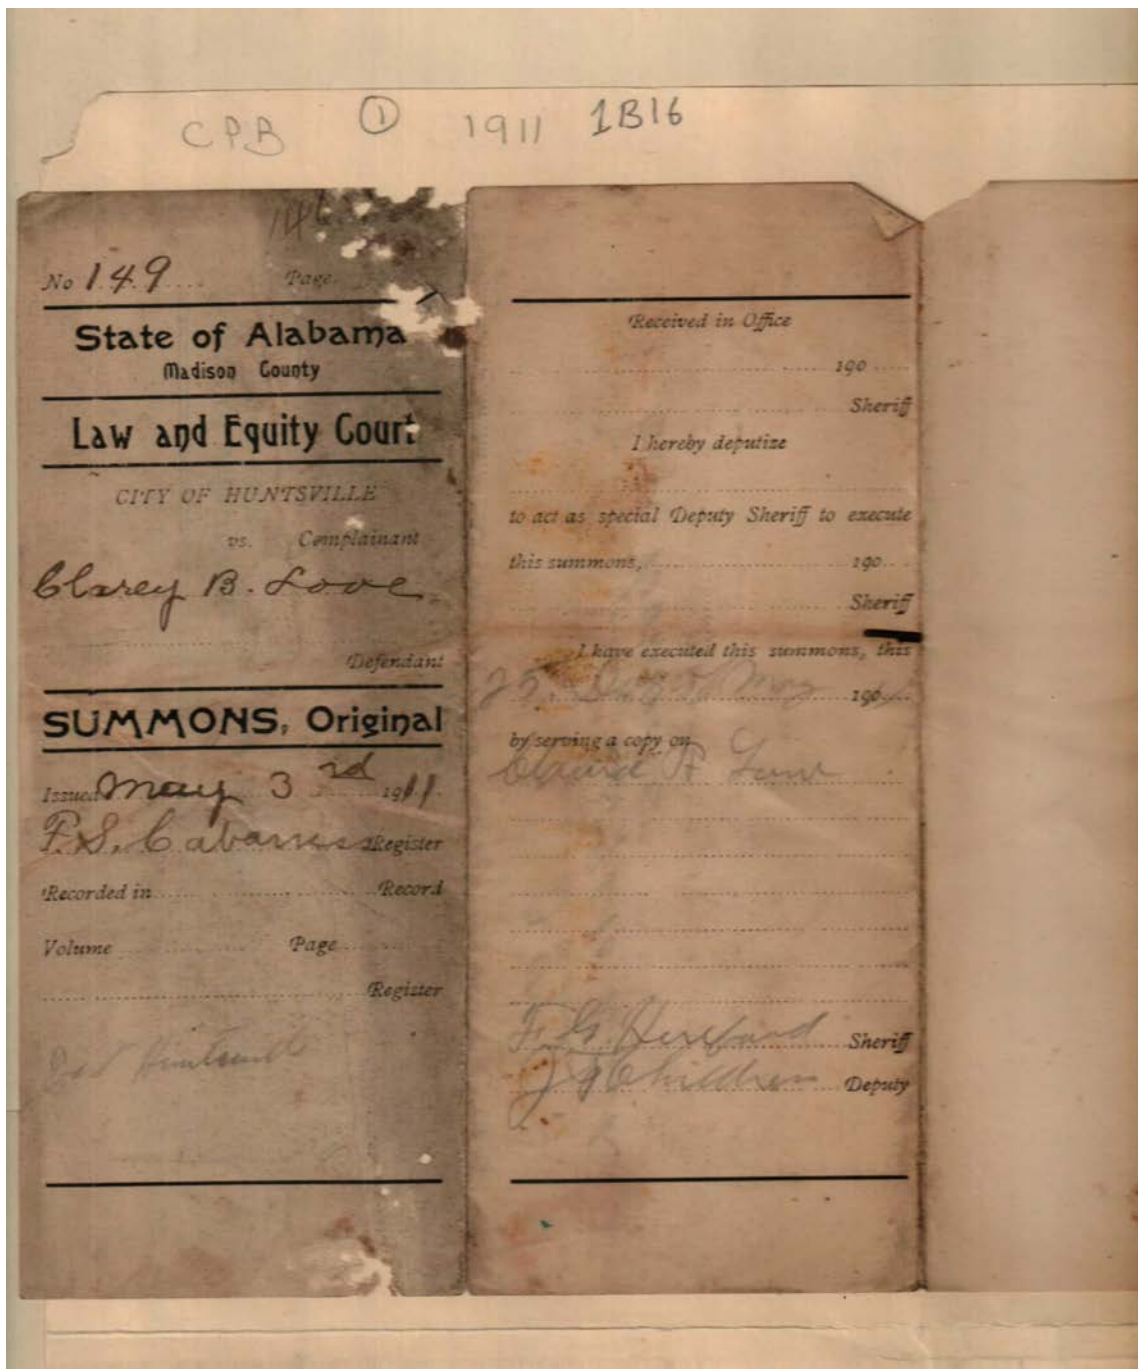 CPB 1 1911 1B16
146
No 149 Page
State of Alabama
Madison County
Law and Equity Court
CITY OF HUNTSVILLE
vs. Complainant
Clarey B. Love
Defendant
SUMMONS, Original
Issued May 3rd 1911
F.S. Cabaniss Register
Recorded in Record
Volume Page
Register
Received in Office
190
Sheriff
I hereby deputize
to act as special Deputy Sheriff to execute
this summons, 190
Sheriff
I have executed this summons, this
25 190
by serving a copy on
Sheriff
Childress Deputy